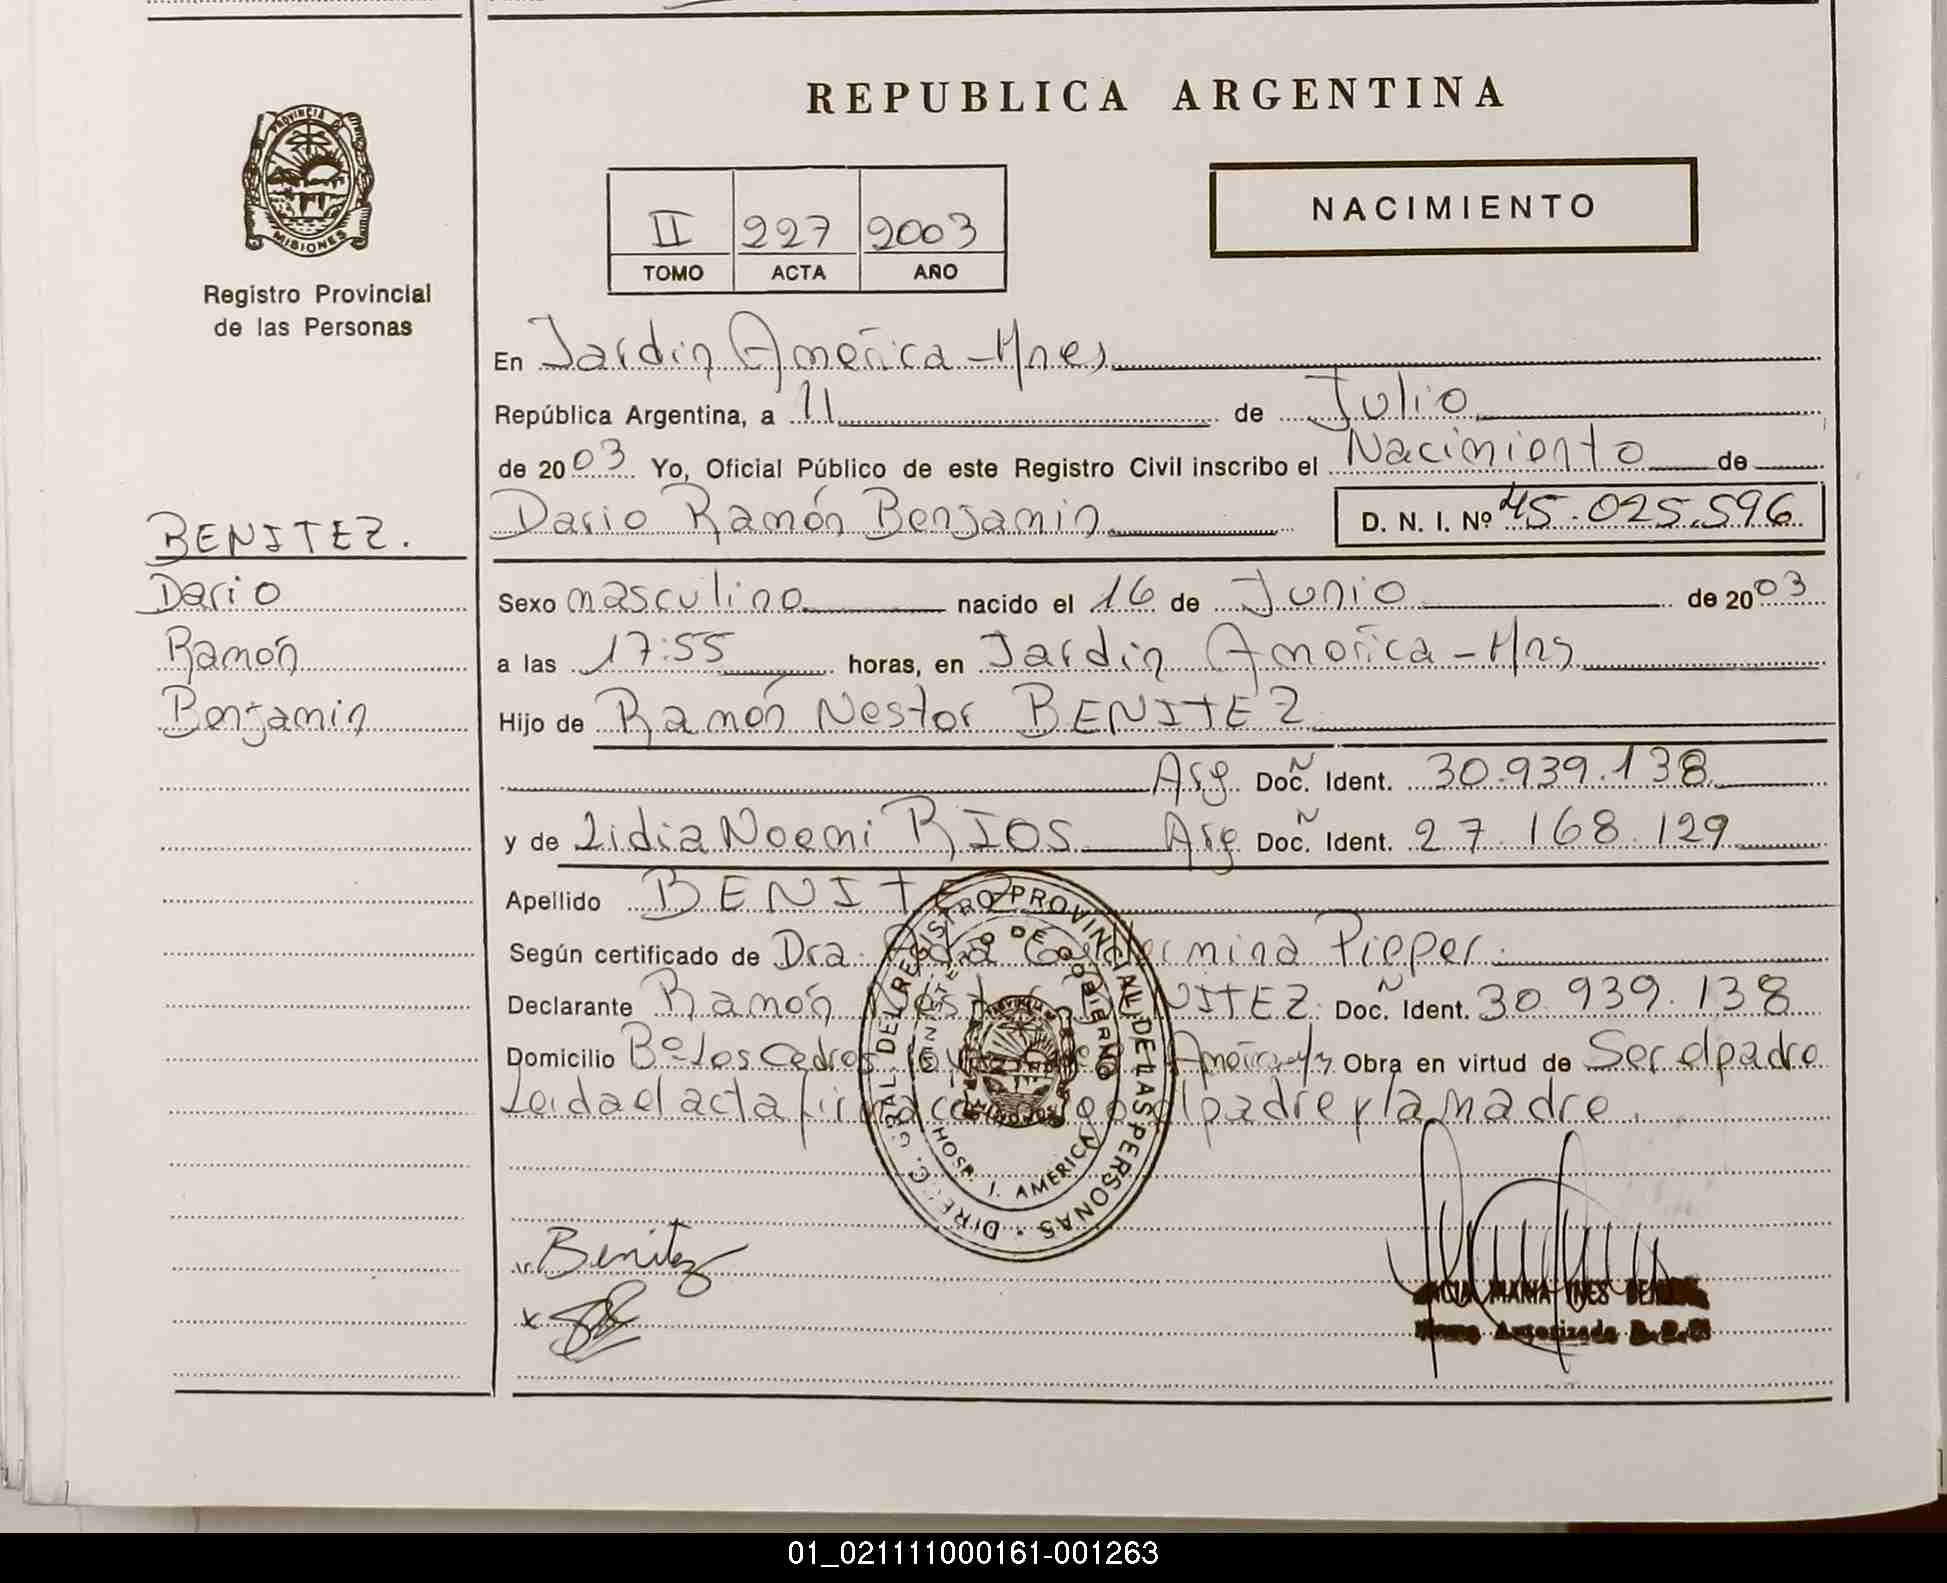 REPUBLICA ARGENTINA
PROVINCIA D
MISIONES
Registro Provincial
de las Personas
NACIMIENTO
II 227 2003
TOMO ACTA AÑO
En Jardin America - Mnes
República Argentina, a 11 de Julio
de 2003 Yo, Oficial Público de este Registro Civil inscribo el Nacimiento de
Dario Ramón Benjamin D. N. I. Nº 45.025.596
BENITEZ.
Dario
Ramón
Benjamin
Sexo masculino nacido el 16 de Junio de 2003
a las 17:55 horas, en Jardin America - Mns
Hijo de Ramón Nestor BENITEZ
Arg Doc. Ident. 30.939.138
y de Lidia Noemi RIOS Arg Doc. Ident. 27.168.129
Apellido BENITEZ
Según certificado de Dra. Pieper.
Declarante Ramón BENITEZ. Doc. Ident. 30.939.138
Domicilio Bº Los Cedros America Obra en virtud de Ser el padre
Leida el acta el padre y la madre.
DIREC. GRAL. DEL REGISTRO PROVINCIAL DE LAS PERSONAS
MINISTERIO DE GOBIERNO
HOSP. J. AMERICA
Benitez
x
MARIA INES
Firma Autorizada
01_021111000161-001263